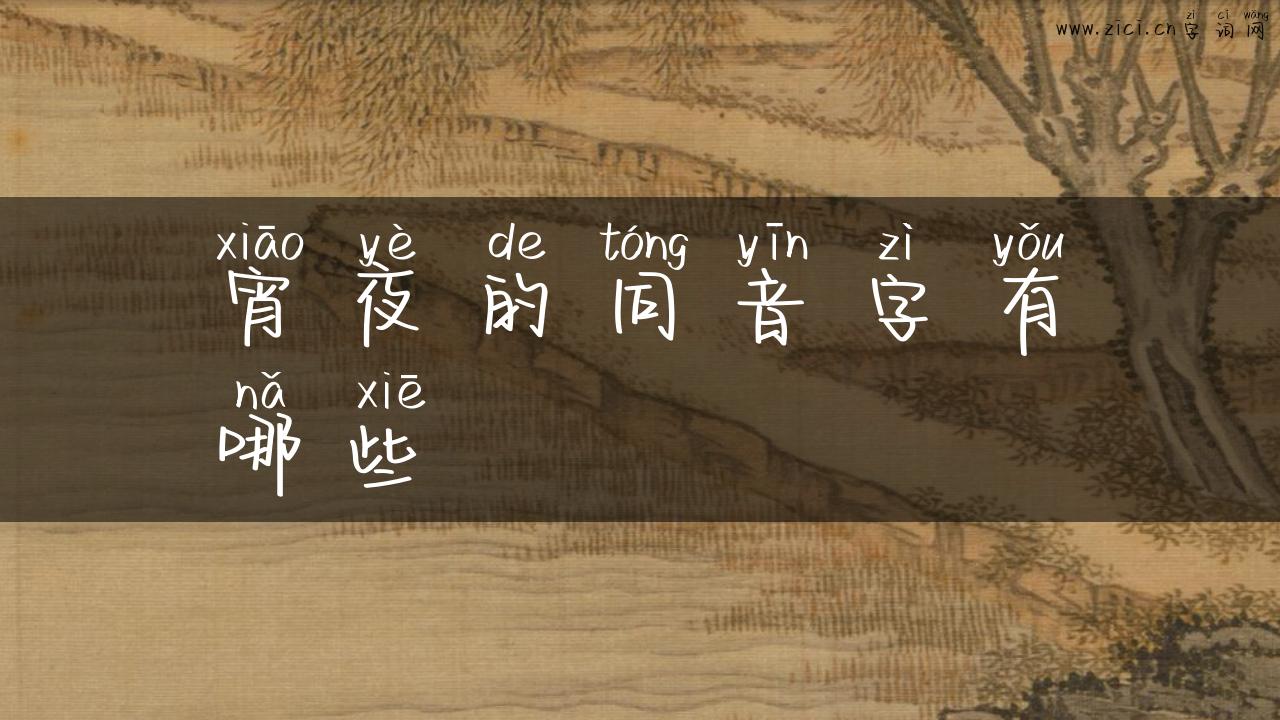 zì cí wǎng
www.zici.cn字词网
xiāo yè de tóng yīn zì yǒu
宵夜的同音字有
nǎ xiē
哪些